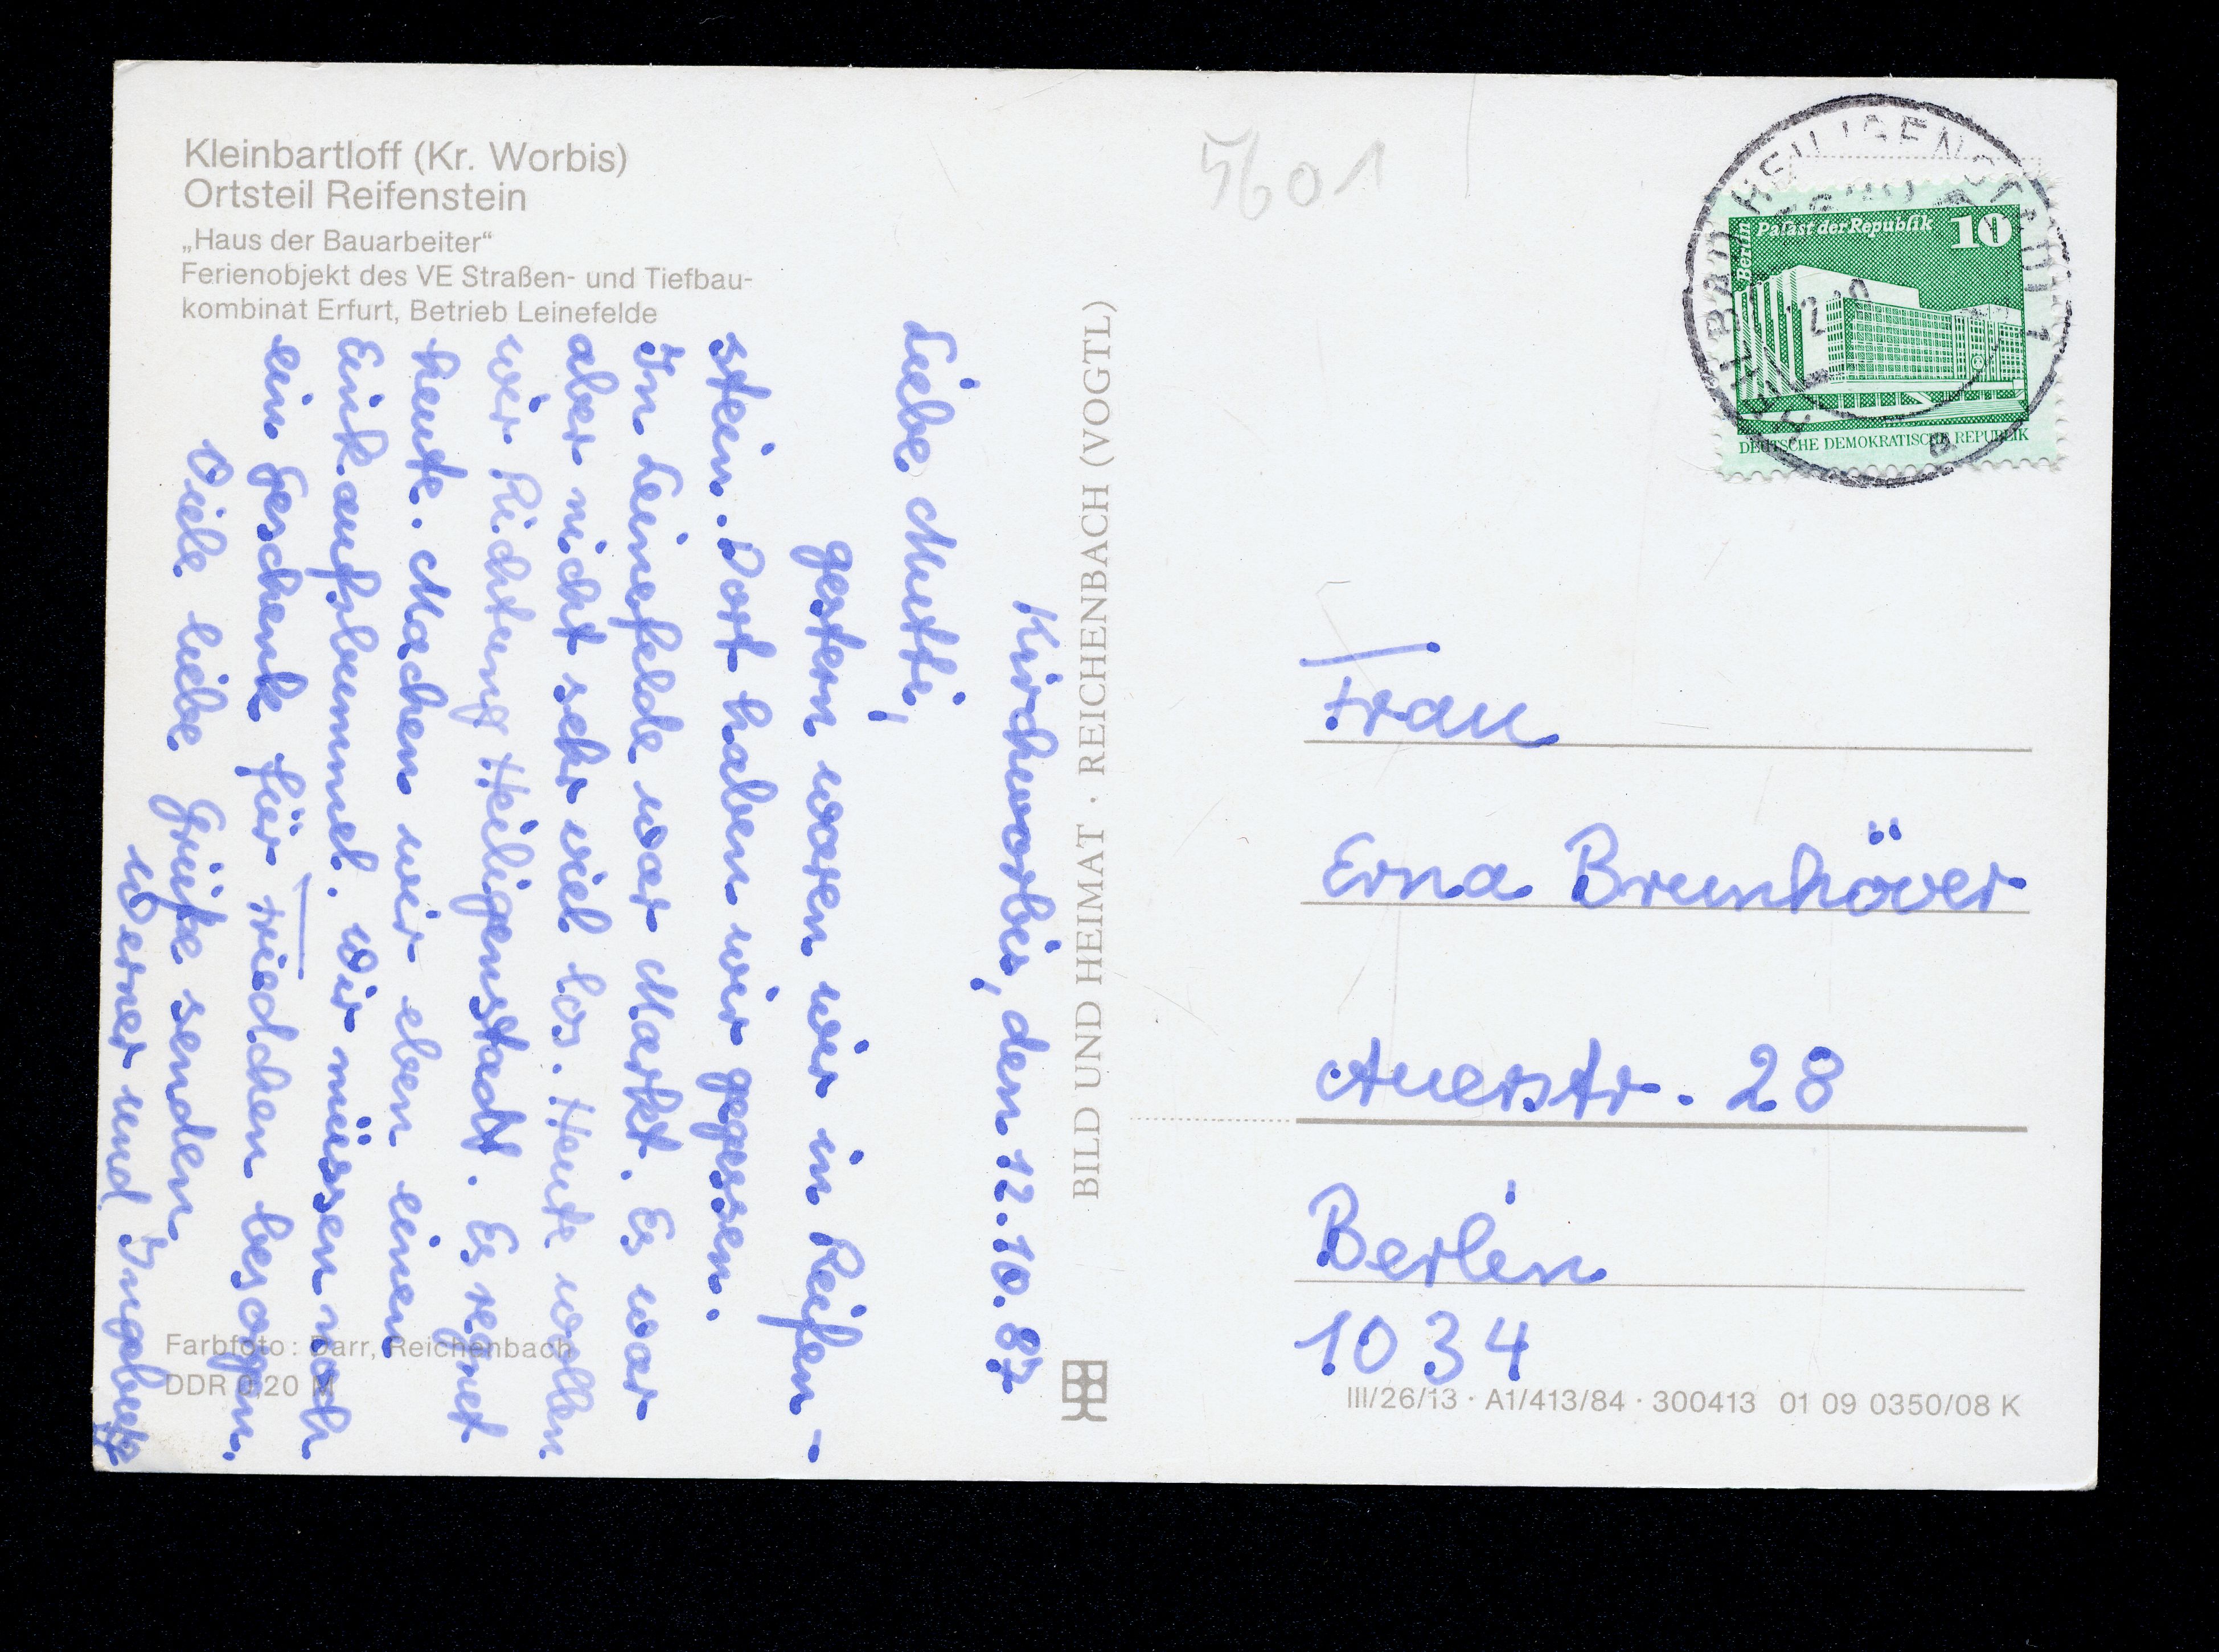 Kleinbartloff (Kr. Worbis)
Ortsteil Reifenstein
„Haus der Bauarbeiter“
Ferienobjekt des VE Straßen- und Tiefbau-
kombinat Erfurt, Betrieb Leinefelde
Kirchworbis, den 12.10.87
Liebe Mutti,
gestern waren wir in Reifen-
stein. Dort haben wir gegessen.
In Leinefelde war Markt. Es war
aber nicht sehr viel los. Heute wollen
wir Richtung Heiligenstadt. Es regnet
heute. Machen wir eben einen
Einkaufsbummel. Wir müssen noch
ein Geschenk für Friedchen besorgen.
Viele liebe Grüße senden
Werner und Ingeburg
Farbfoto: Darr, Reichenbach
DDR 0,20 M
BILD UND HEIMAT · REICHENBACH (VOGTL)
5601
HEILBAD HEILIGENSTADT 1
a
Berlin
Palast der Republik 10
DEUTSCHE DEMOKRATISCHE REPUBLIK
Frau
Erna Brunhöver
Auerstr. 28
Berlin
1034
III/26/13 · A1/413/84 · 300413 01 09 0350/08 K